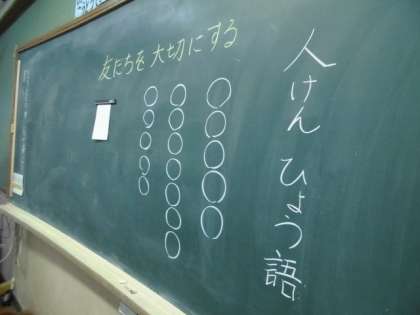 人けん ひょう語
友だちを 大切にする
○○○○○
○○○○○○○
○○○○○